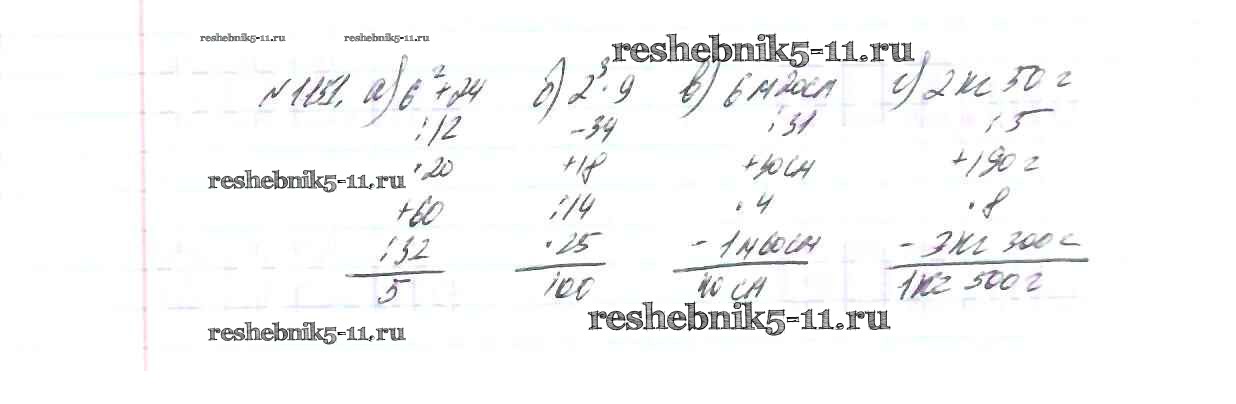 reshebnik5-11.ru reshebnik5-11.ru reshebnik5-11.ru
№1151. а) 6² + 24 б) 2³ · 9 в) 6 м 20 см г) 2 кг 50 г
:12 -34 :31 :5
·20 +18 +30 см +190 г
reshebnik5-11.ru
+60 :14 ·4 ·8
:32 ·25 - 1 м 60 см - 3 кг 300 г
5 100 40 см 1 кг 500 г
reshebnik5-11.ru reshebnik5-11.ru